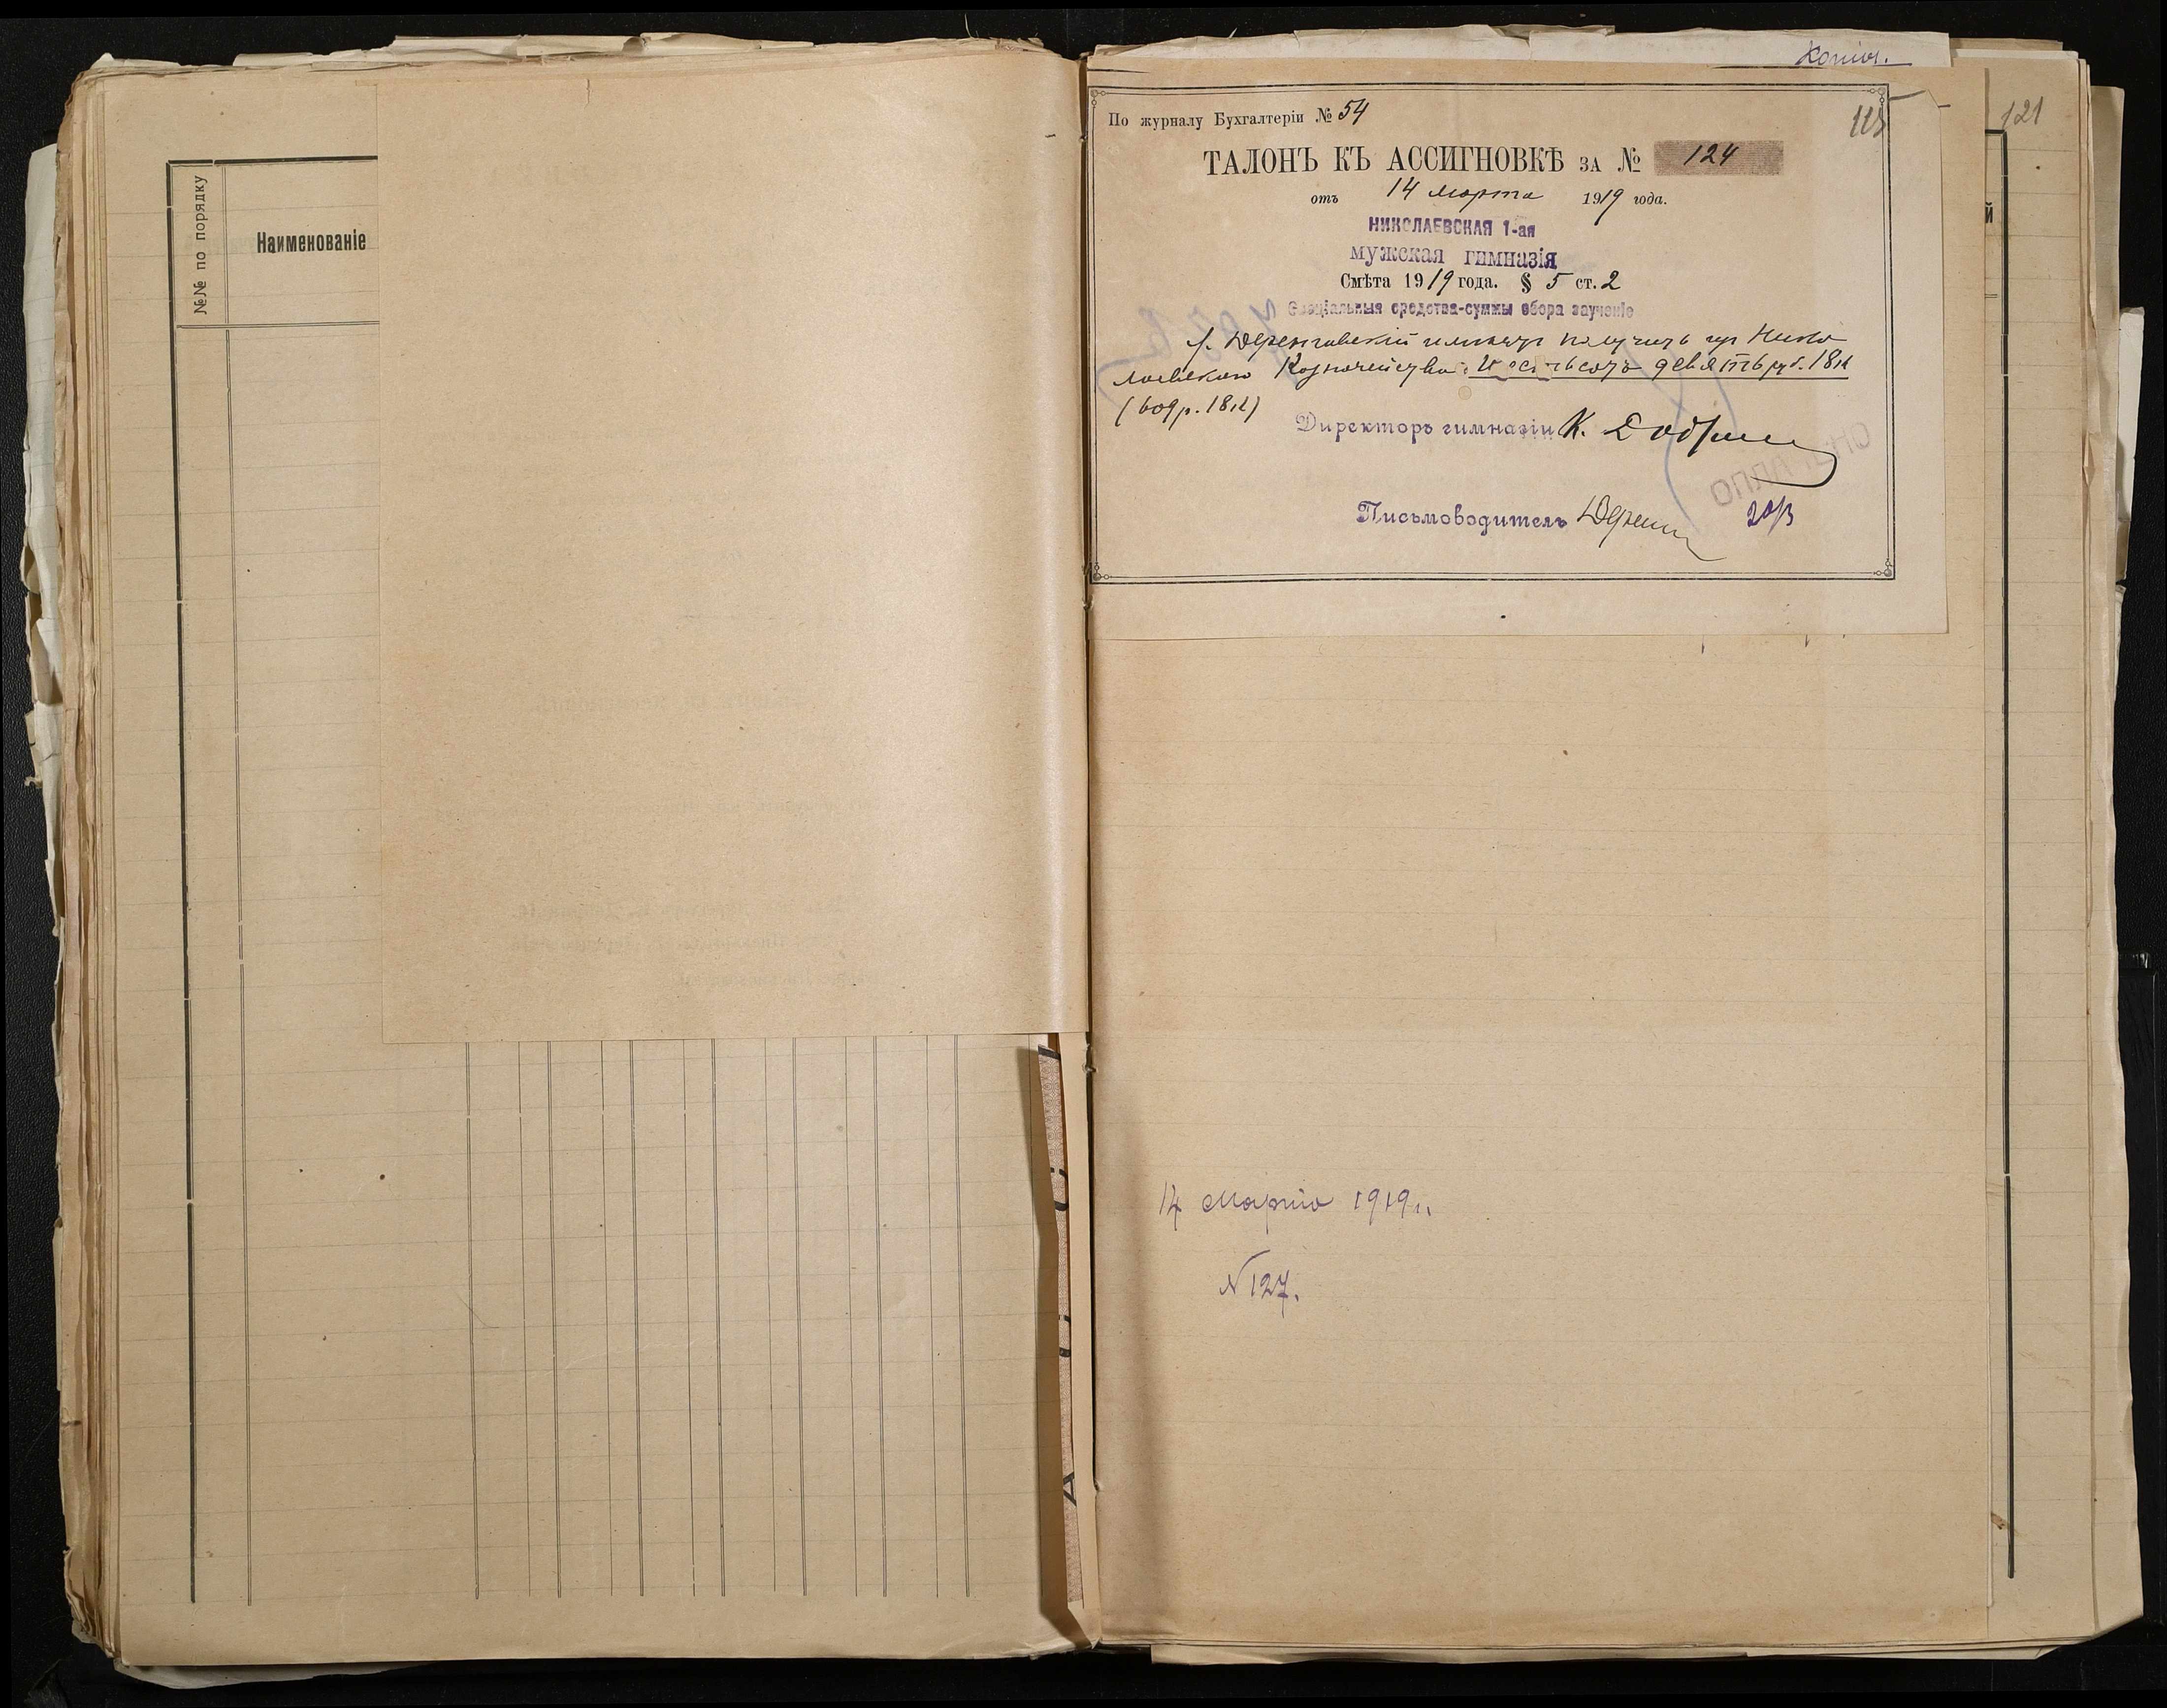 №№ по порядку
Наименованіе
Копія.
121
По журналу Бухгалтеріи № 54
ТАЛОНЪ КЪ АССИГНОВКѢ ЗА № 124
отъ 14 марта 1919 года.
НИКОЛАЕВСКАЯ 1-ая
мужская гимназія
Смѣта 1919 года. § 5 ст. 2
Спеціальныя средства-суммы сбора за ученіе
г. имѣетъ получить изъ Нико
лаевскаго Казначейства: Шестьсотъ девять руб. 18 к
(609 р. 18 к)
Директоръ гимназіи К.
Письмоводитель
20/3
14 Марта 1919 г.
N 127.